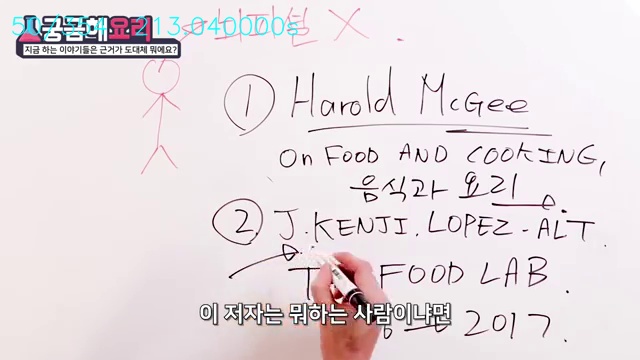 213.040000s
궁금해요리
지금 하는 이야기들은 근거가 도대체 뭐에요?
X.
① Harold McGee
ON FOOD AND COOKING,
음식과 요리
② J.KENJI.LOPEZ-ALT.
FOOD LAB.
2017.
이 저자는 뭐하는 사람이냐면